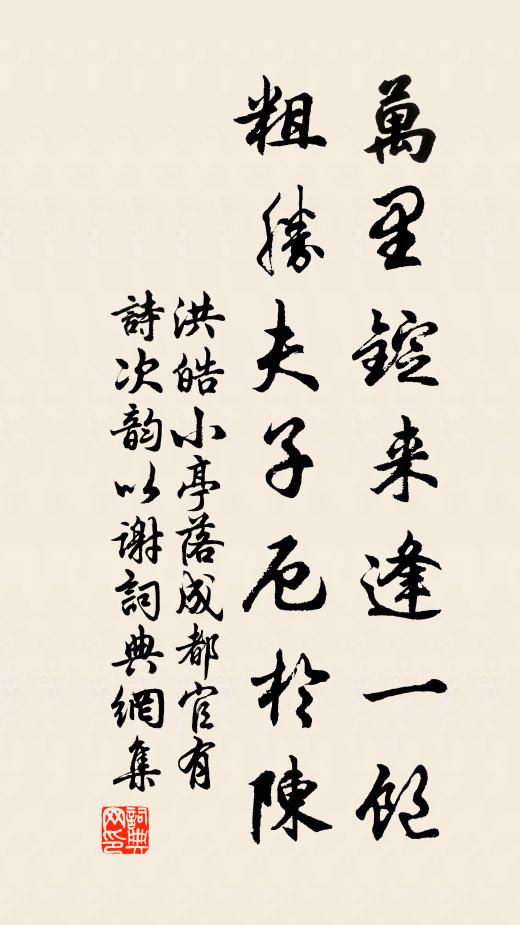 萬里錠来逢一飽
粗勝夫子厄於陳
洪皓小亭落成都官有
詩次韵以謝詞典網集
詞典网印